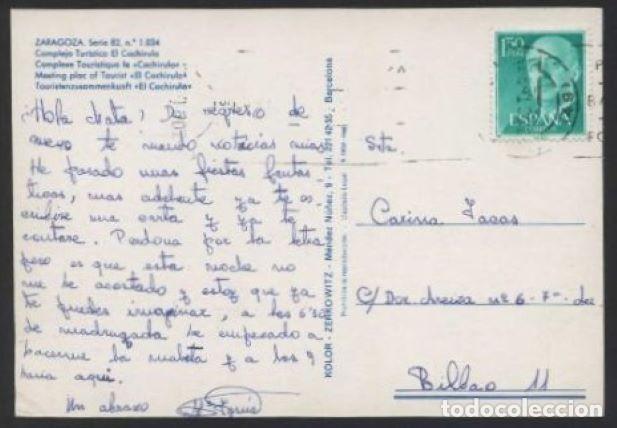 ZARAGOZA. Serie 82, n.º 1.034
Complejo Turístico El Cachirulo
Complexe Touristique le «Cachirulo»
Meeting plac of Tourist «El Cachirulo»
Touristenzusammenkunft «El Cachirulo»
¡Hola chata! De regreso de
nuevo te mando noticias mias
He pasado unas fiestas fantas
ticas, mas adelante ya te es
cribire una carta y ya te
contare. Perdona por la letra
pero es que esta noche no
me he acostado y estoy que ya
te puedes imaginar, a las 6'30
de madrugada he empezado a
hacerme la maleta y a las 9
hacia aqui.
Un abrazo
KOLOR - ZERKOWITZ - Méndez Núñez, 9 - Tel. 221 42 35 - Barcelona
Prohibida la reproducción
1'50
PTAS
ESPAÑA
CORREOS
Srta.
Carina
C/ Doc. Areiza nº 6 - 7º - dec
Bilbao 11
todocoleccion
todocoleccion.net